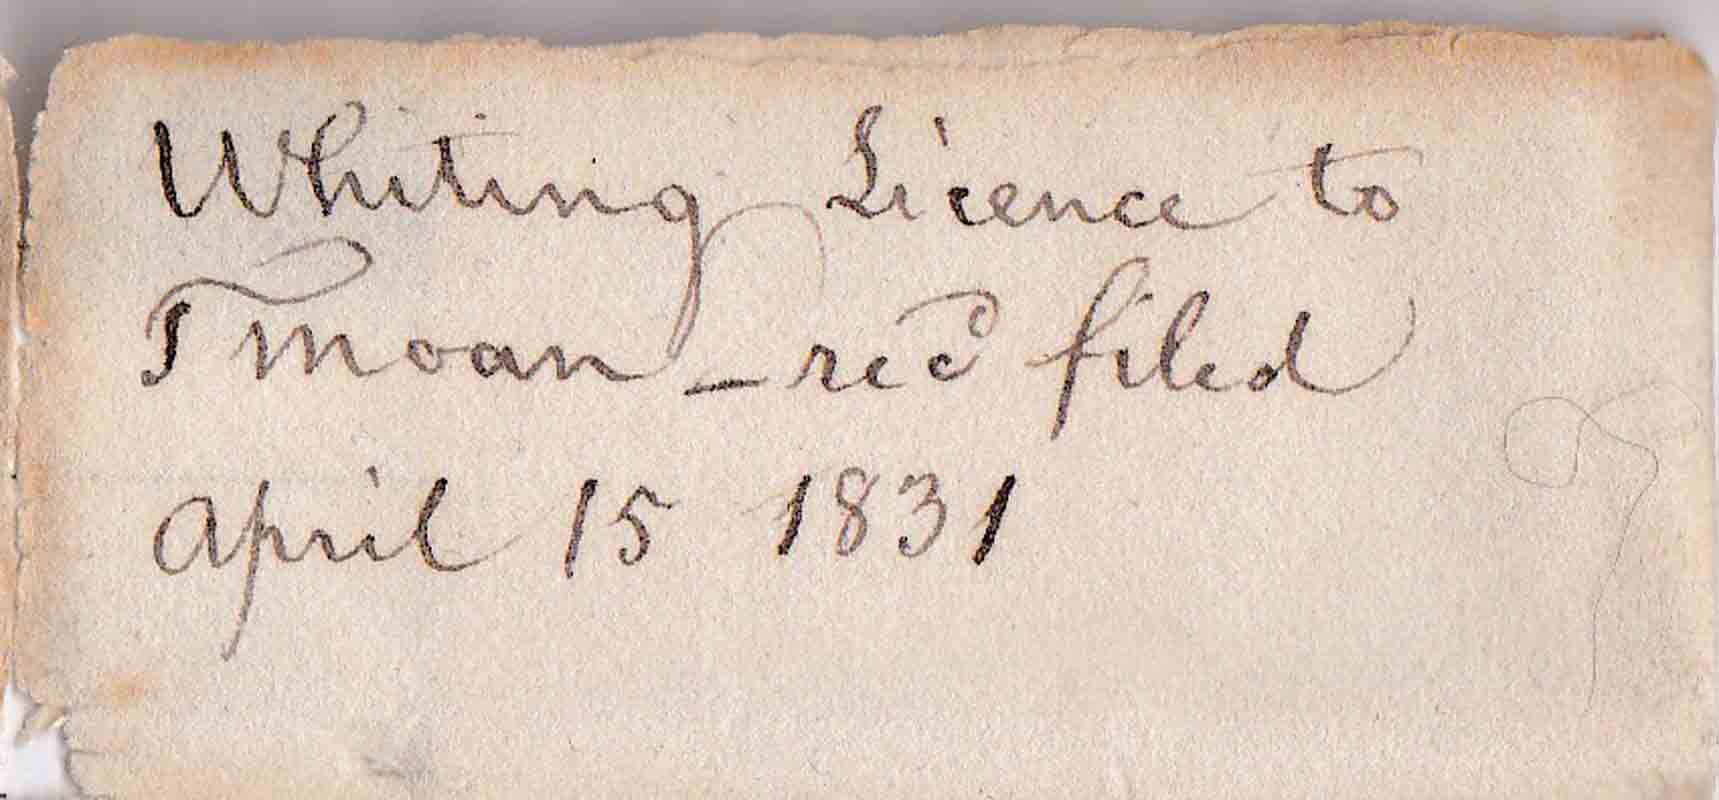 Whiting Licence to
T moan – rec'd filed
april 15 1831